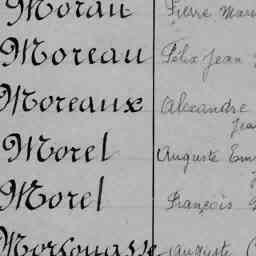 Morau Pierre Marie
Moreau Félix Jean
Moreaux Alexandre
Jean
Morel Auguste Em
Morel François
Auguste